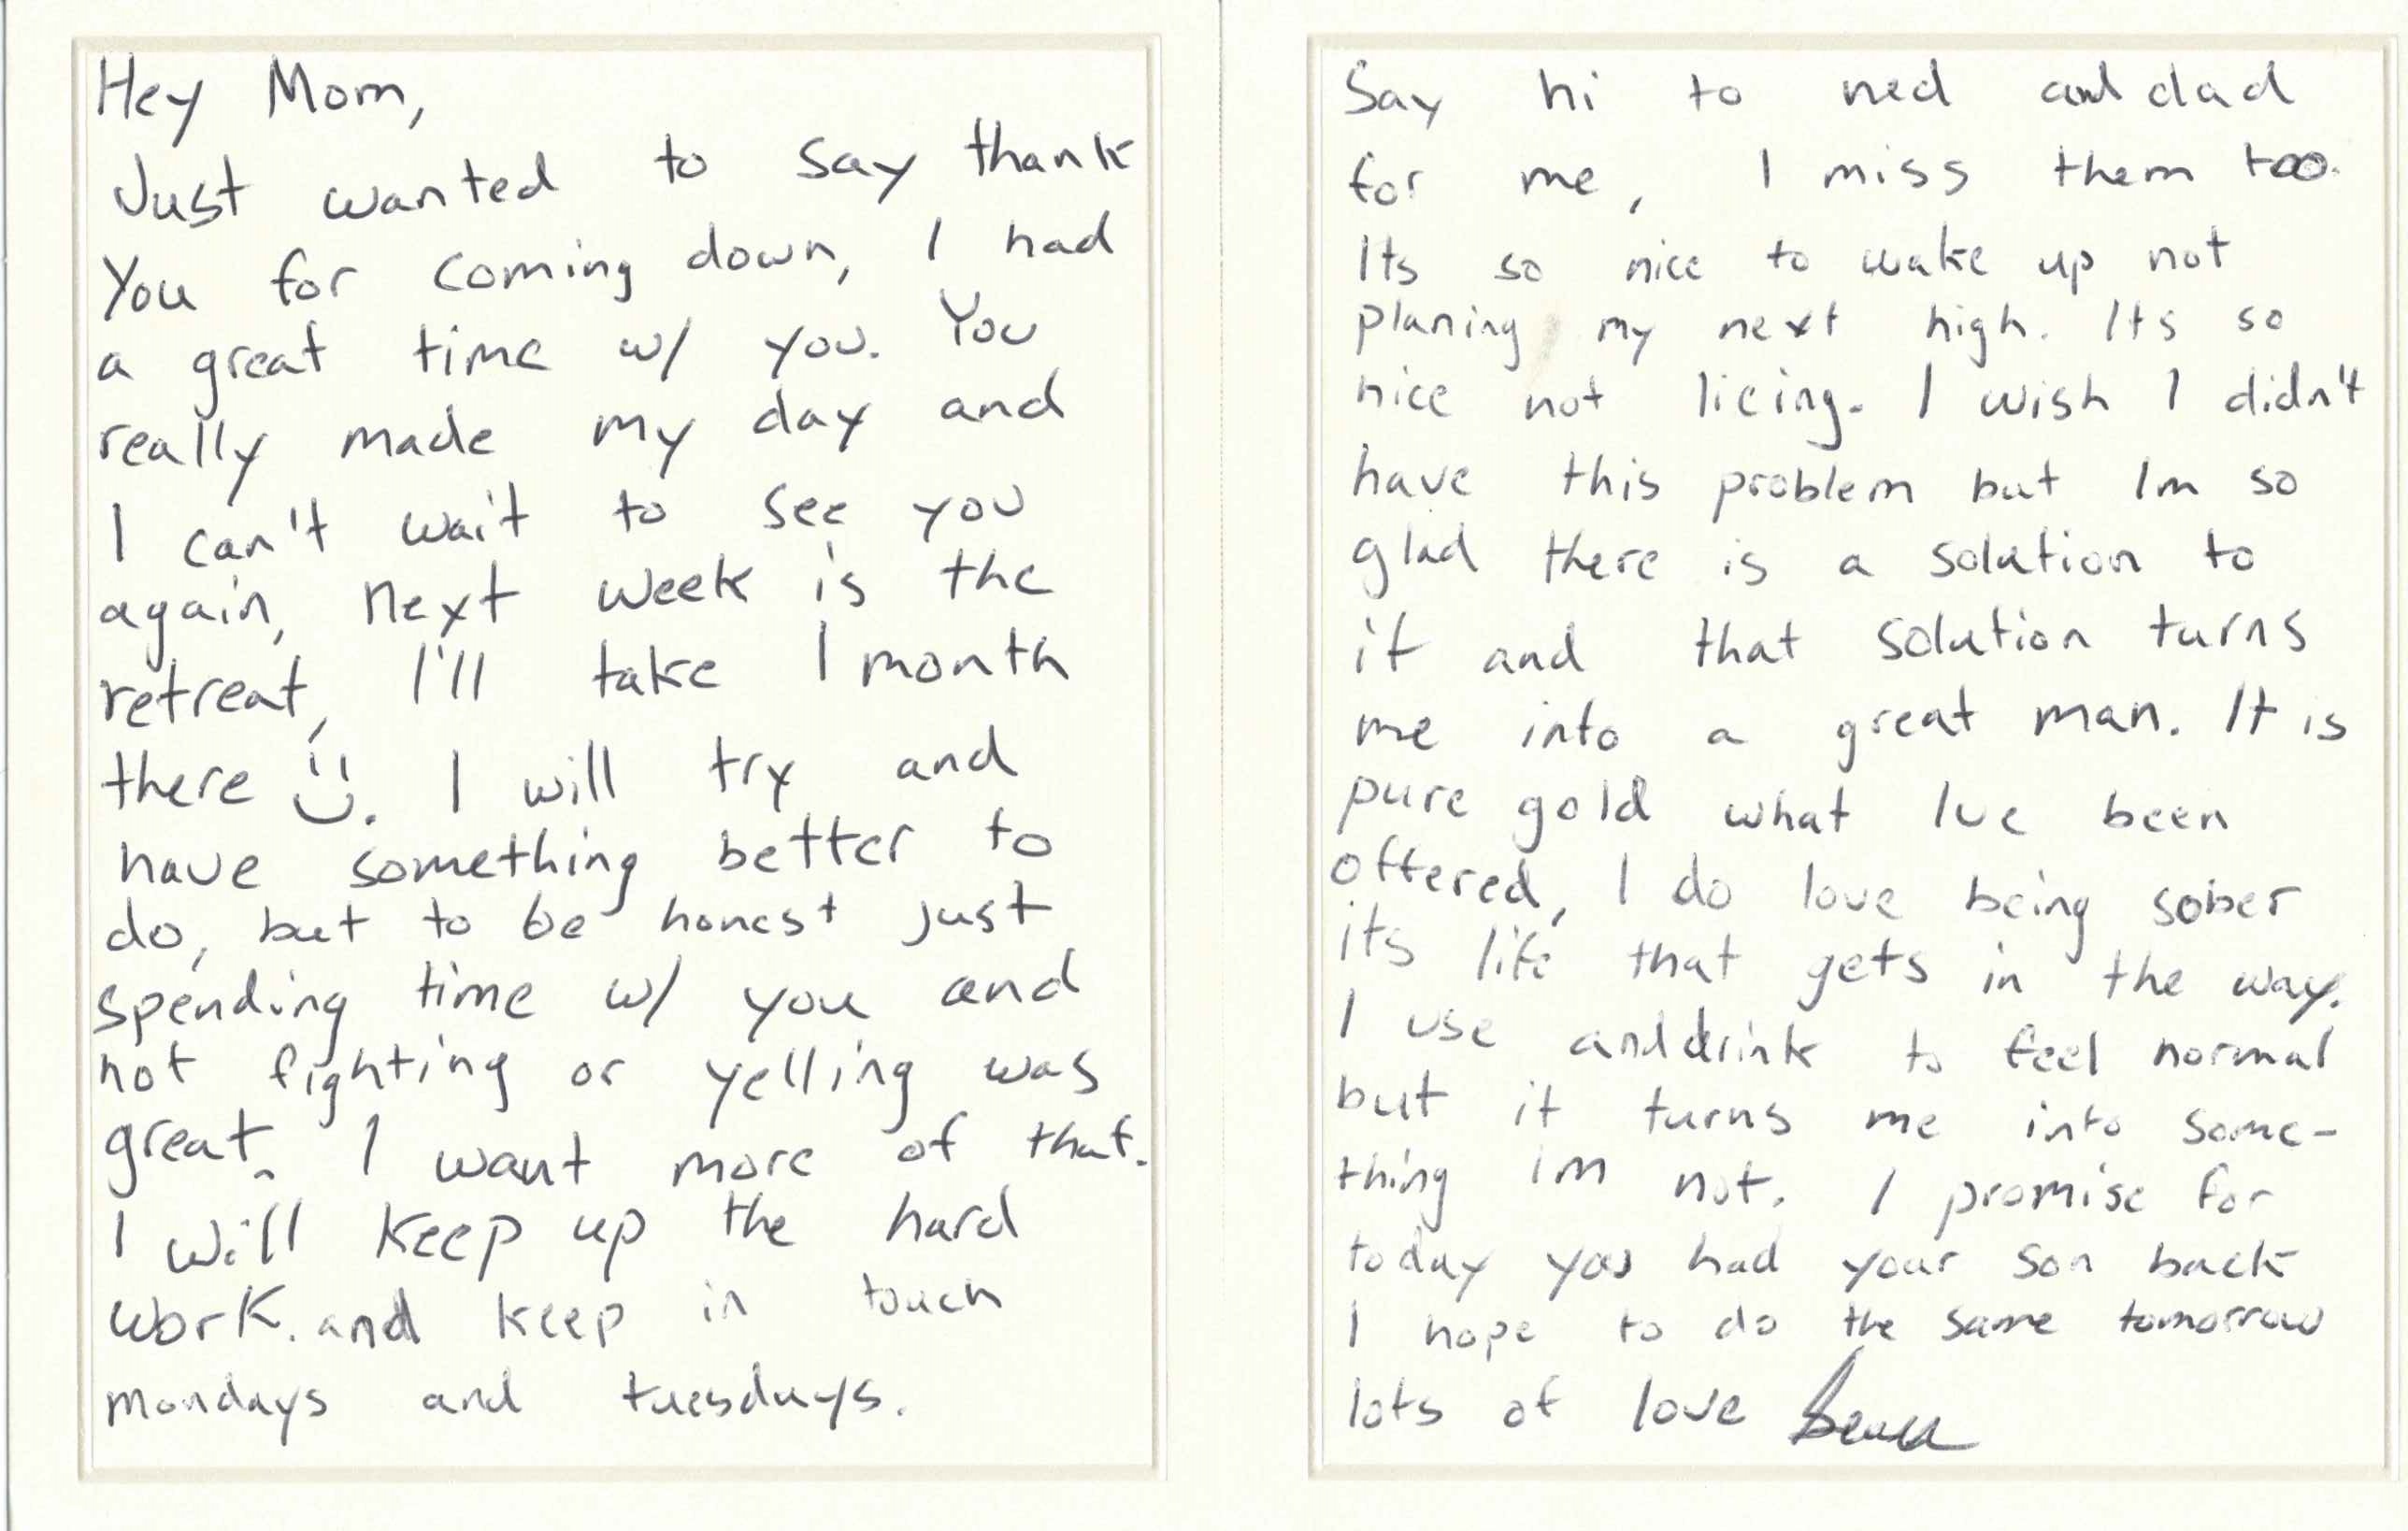 Hey Mom,
Just wanted to say thank
You for coming down, I had
a great time w/ you. You
really made my day and
I can't wait to see you
again, next week is the
retreat, I'll take 1 month
there :). I will try and
have something better to
do, but to be honest just
spending time w/ you and
not fighting or yelling was
great. I want more of that.
I will keep up the hard
work. and keep in touch
mondays and tuesdays.
Say hi to ned and dad
for me, I miss them too.
Its so nice to wake up not
planing my next high. Its so
nice not lieing. I wish I didn't
have this problem but Im so
glad there is a solution to
it and that solution turns
me into a great man. It is
pure gold what Ive been
offered, I do love being sober
its life that gets in the way.
I use and drink to feel normal
but it turns me into some-
thing im not. I promise for
today you had your son back
I hope to do the same tomorrow
lots of love